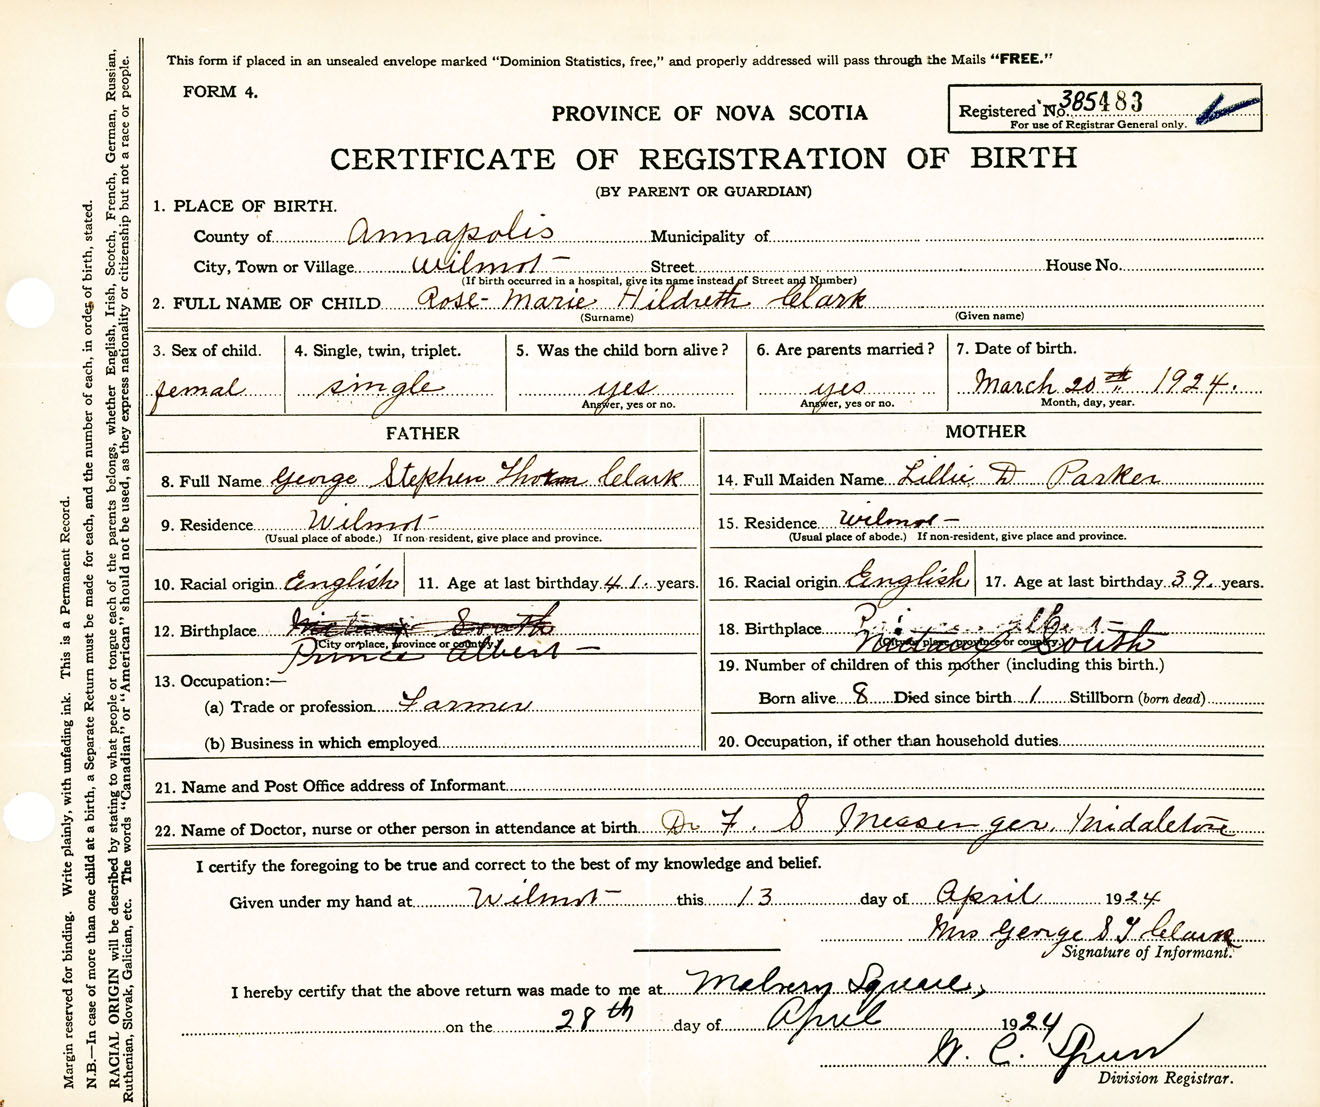 This form if placed in an unsealed envelope marked “Dominion Statistics, free,” and properly addressed will pass through the Mails “FREE.”
FORM 4.
PROVINCE OF NOVA SCOTIA
Registered No. 385483
For use of Registrar General only.
CERTIFICATE OF REGISTRATION OF BIRTH
(BY PARENT OR GUARDIAN)
1. PLACE OF BIRTH.
County of Annapolis Municipality of
City, Town or Village Wilmot Street House No.
(If birth occurred in a hospital, give its name instead of Street and Number)
2. FULL NAME OF CHILD Rose-Marie Hildreth Clark
(Surname) (Given name)
3. Sex of child. 4. Single, twin, triplet. 5. Was the child born alive? 6. Are parents married? 7. Date of birth.
femal single yes yes March 20th 1924.
Answer, yes or no. Answer, yes or no. Month, day, year.
FATHER MOTHER
8. Full Name George Stephen Thorn Clark 14. Full Maiden Name Lillie D Parker
9. Residence Wilmot 15. Residence Wilmot
(Usual place of abode.) If non-resident, give place and province. (Usual place of abode.) If non-resident, give place and province.
10. Racial origin English 11. Age at last birthday 41 years. 16. Racial origin English 17. Age at last birthday 39 years.
12. Birthplace South 18. Birthplace Prince Albert
(City or place, province or country.) (City or place, province or country.)
Prince Albert South
19. Number of children of this mother (including this birth.)
13. Occupation:—
Born alive 8 Died since birth 1 Stillborn (born dead)
(a) Trade or profession Farmer
(b) Business in which employed 20. Occupation, if other than household duties
21. Name and Post Office address of Informant
22. Name of Doctor, nurse or other person in attendance at birth Dr F. S Messenger, Middletone
I certify the foregoing to be true and correct to the best of my knowledge and belief.
Given under my hand at Wilmot this 13 day of April 1924
Mrs George S T Clark
Signature of Informant.
I hereby certify that the above return was made to me at Melvern Square,
on the 28th day of April 1924
Division Registrar.
Margin reserved for binding. Write plainly, with unfading ink. This is a Permanent Record.
N.B.—In case of more than one child at a birth, a Separate Return must be made for each, and the number of each, in order of birth, stated.
RACIAL ORIGIN will be described by stating to what people or tongue each of the parents belongs, whether English, Irish, Scotch, French, German, Russian,
Ruthenian, Slovak, Galician, etc. The words “Canadian” or “American” should not be used, as they express nationality or citizenship but not a race or people.